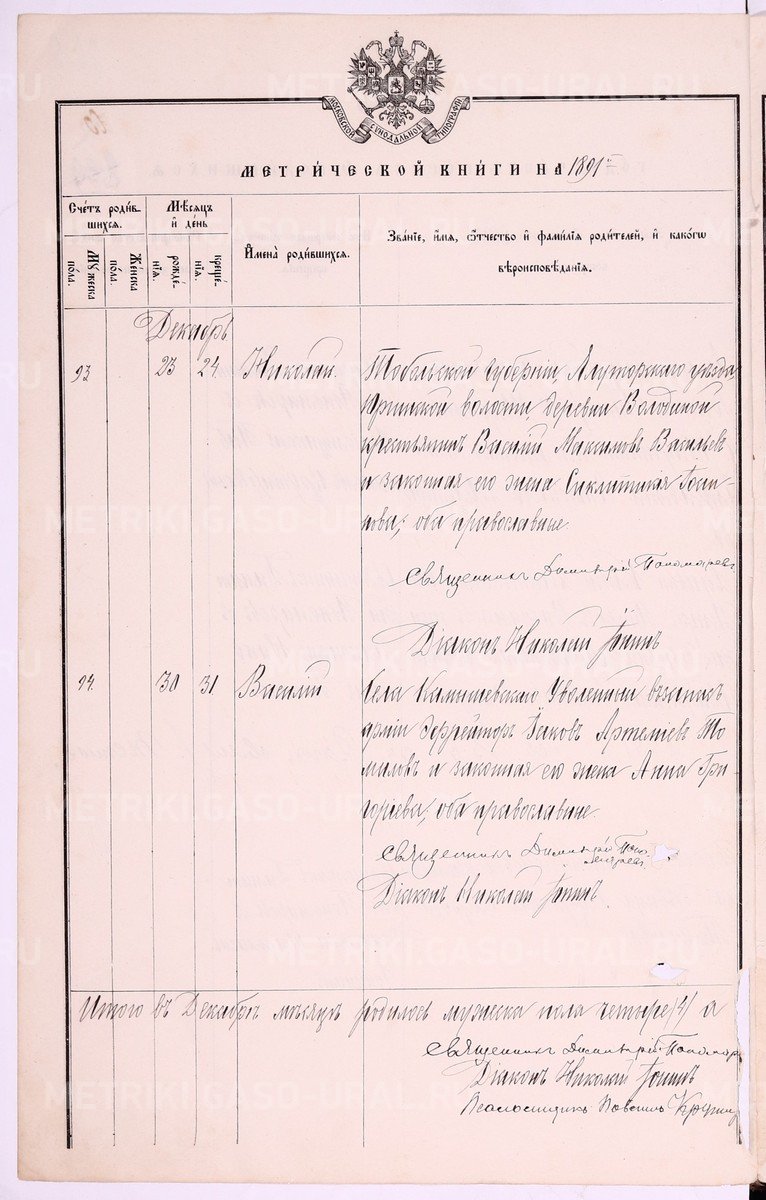 МОСКОВСКОЙ СѴНОДАЛЬНОЙ ТИПОГРАФІИ
МЕТРИ́ЧЕСКОЙ КНИ́ГИ НА 1891 г.
Сче́тъ роди́вшихся.
Мѣ́сяцъ и де́нь
Имена̀ роди́вшихся.
Зва́ніе, и́мя, ѻ́тчество и фами́лія роди́телей, и како́гѡ вѣроисповѣ́данія.
Му́жеска по́ла.
Же́нска по́ла.
рожде́нія.
креще́нія.
Декабрь
93
23
24
Николай
Тобольской Губерніи, Ялуторскаго уѣзда,
Юринской волости деревни Володиной
крестьянинъ Василій Максимовъ Васильевъ
и законная его жена Сиклитикія
оба православные.
Священникъ Димитрій Пономаревъ
Діаконъ Николай Іонинъ
94.
30
31
Василій
Села Камышевскаго Уволенный въ запасъ
арміи Ефрейторъ Іаковъ Артеміевъ То-
миловъ и законная его жена Анна Гри-
горіева, оба православные.
Священникъ Димитрій Поно
маревъ
Діаконъ Николай Іонинъ.
Итого въ Декабрѣ мѣсяцѣ родилось мужеска пола четыре /4/ а
Священникъ Димитрій Пономар
Діаконъ Николай Іонинъ
Псаломщикъ
METRIKI.GASO-URAL.RU